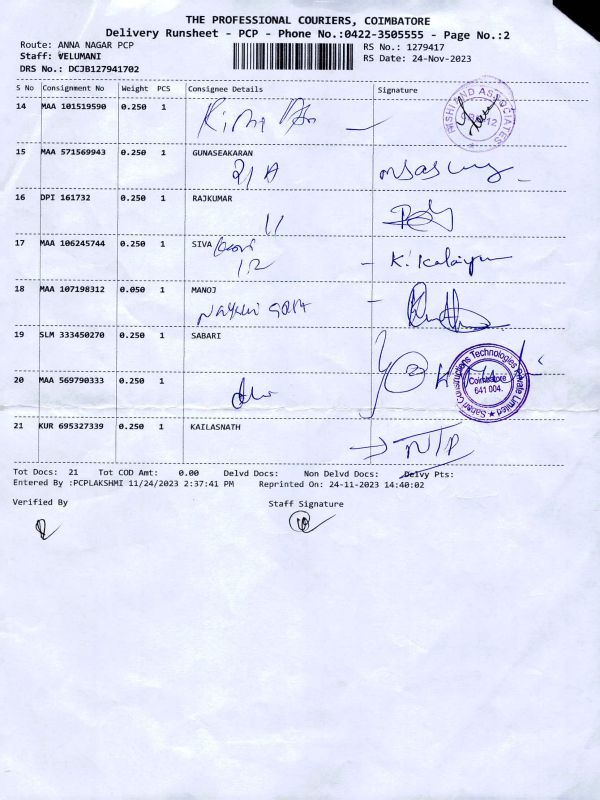 THE PROFESSIONAL COURIERS, COIMBATORE
Delivery Runsheet - PCP - Phone No.:0422-3505555 - Page No.:2
Route: ANNA NAGAR PCP RS No.: 1279417
Staff: VELUMANI RS Date: 24-Nov-2023
DRS No.: DCJB127941702
S No Consignment No Weight PCS Consignee Details Signature
14 MAA 101519590 0.250 1
RISHI AND ASSOCIATES
15 MAA 571569943 0.250 1 GUNASEAKARAN
21 A
16 DPI 161732 0.250 1 RAJKUMAR
11
17 MAA 106245744 0.250 1 SIVA
12
18 MAA 107198312 0.050 1 MANOJ
19 SLM 333450270 0.250 1 SABARI
20 MAA 569790333 0.250 1
Constructions Technologies Private Limited
Coimbatore
641 004.
21 KUR 695327339 0.250 1 KAILASNATH
Tot Docs: 21 Tot COD Amt: 0.00 Delvd Docs: Non Delvd Docs: Delvy Pts:
Entered By :PCPLAKSHMI 11/24/2023 2:37:41 PM Reprinted On: 24-11-2023 14:40:02
Verified By Staff Signature